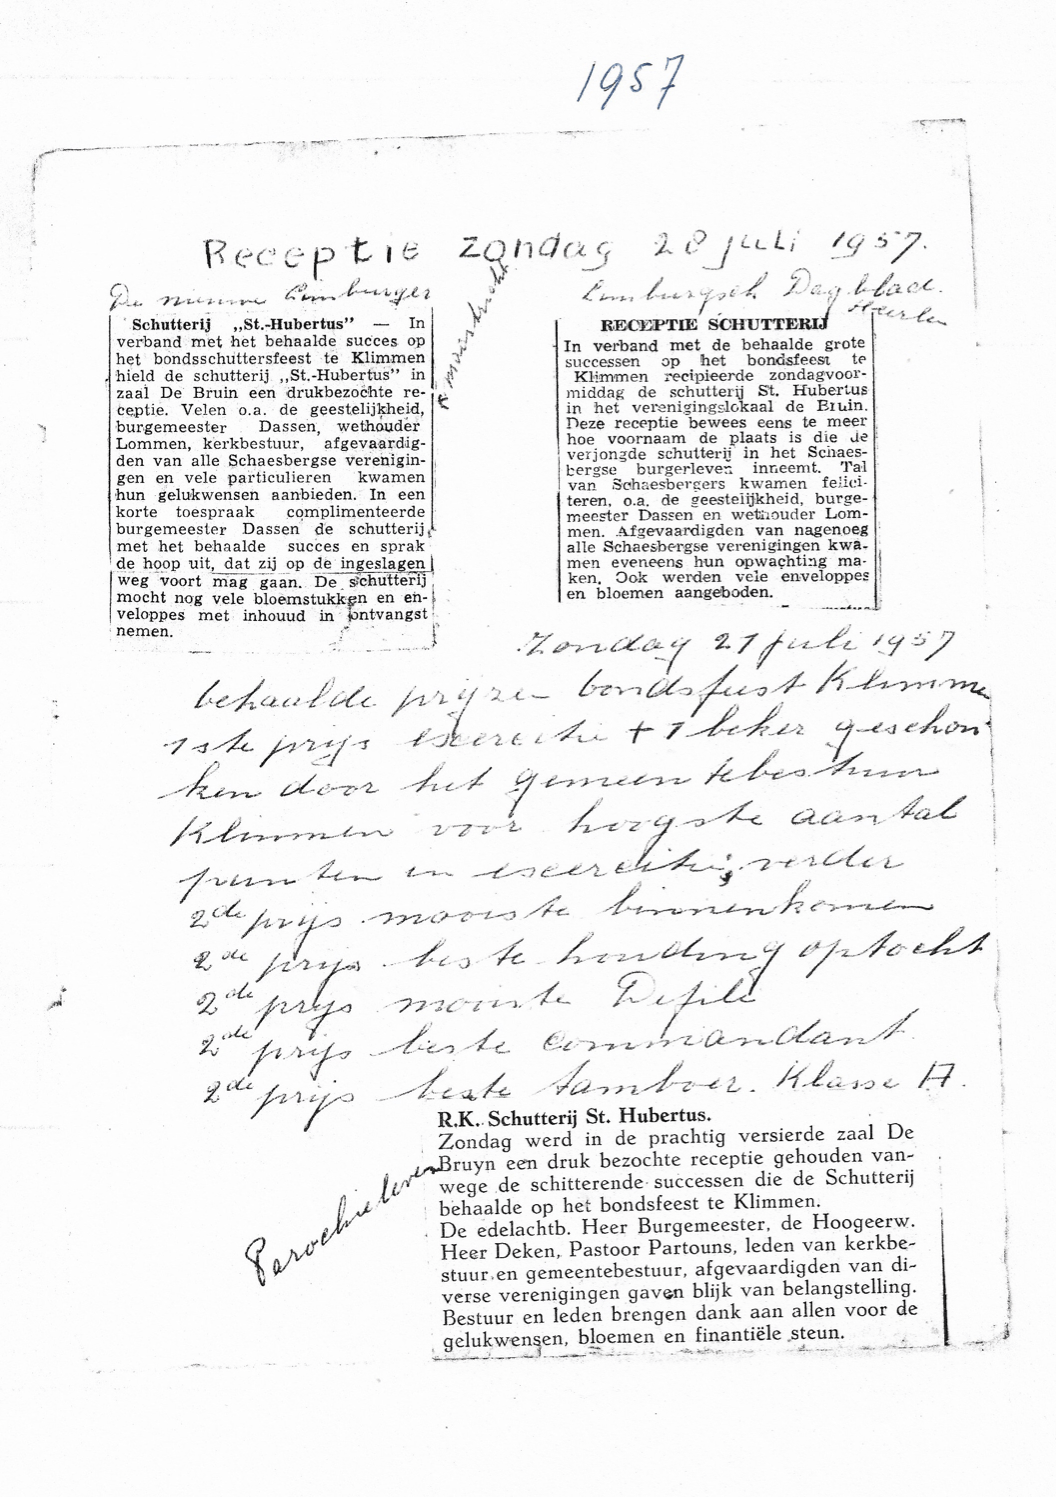 1957
Receptie zondag 28 juli 1957.
De nieuwe Limburger
Maastricht
Schutterij „St.-Hubertus” — In
verband met het behaalde succes op
het bondsschuttersfeest te Klimmen
hield de schutterij „St.-Hubertus” in
zaal De Bruin een drukbezochte re-
ceptie. Velen o.a. de geestelijkheid,
burgemeester Dassen, wethouder
Lommen, kerkbestuur, afgevaardig-
den van alle Schaesbergse verenigin-
gen en vele particulieren kwamen
hun gelukwensen aanbieden. In een
korte toespraak complimenteerde
burgemeester Dassen de schutterij
met het behaalde succes en sprak
de hoop uit, dat zij op de ingeslagen
weg voort mag gaan. De schutterij
mocht nog vele bloemstukken en en-
veloppes met inhoud in ontvangst
nemen.
Limburgsch Dagblad.
Heerlen
RECEPTIE SCHUTTERIJ
In verband met de behaalde grote
successen op het bondsfeest te
Klimmen recipieerde zondagvoor-
middag de schutterij St. Hubertus
in het verenigingslokaal de Bruin.
Deze receptie bewees eens te meer
hoe voornaam de plaats is die de
verjongde schutterij in het Schaes-
bergse burgerleven inneemt. Tal
van Schaesbergers kwamen felici-
teren, o.a. de geestelijkheid, burge-
meester Dassen en wethouder Lom-
men. Afgevaardigden van nagenoeg
alle Schaesbergse verenigingen kwa-
men eveneens hun opwachting ma-
ken. Ook werden vele enveloppes
en bloemen aangeboden.
Zondag 21 juli 1957
behaalde prijzen bondsfeest Klimmen
1ste prijs exercitie + 1 beker geschon
ken door het gemeentebestuur
Klimmen voor hoogste aantal
punten in exercitie; verder
2de prijs mooiste binnenkomen
2de prijs beste houding optocht
2de prijs mooiste Defilé
2de prijs beste commandant.
2de prijs beste tamboer. Klasse A.
Parochieleven
R.K. Schutterij St. Hubertus.
Zondag werd in de prachtig versierde zaal De
Bruyn een druk bezochte receptie gehouden van-
wege de schitterende successen die de Schutterij
behaalde op het bondsfeest te Klimmen.
De edelachtb. Heer Burgemeester, de Hoogeerw.
Heer Deken, Pastoor Partouns, leden van kerkbe-
stuur en gemeentebestuur, afgevaardigden van di-
verse verenigingen gaven blijk van belangstelling.
Bestuur en leden brengen dank aan allen voor de
gelukwensen, bloemen en finantiële steun.